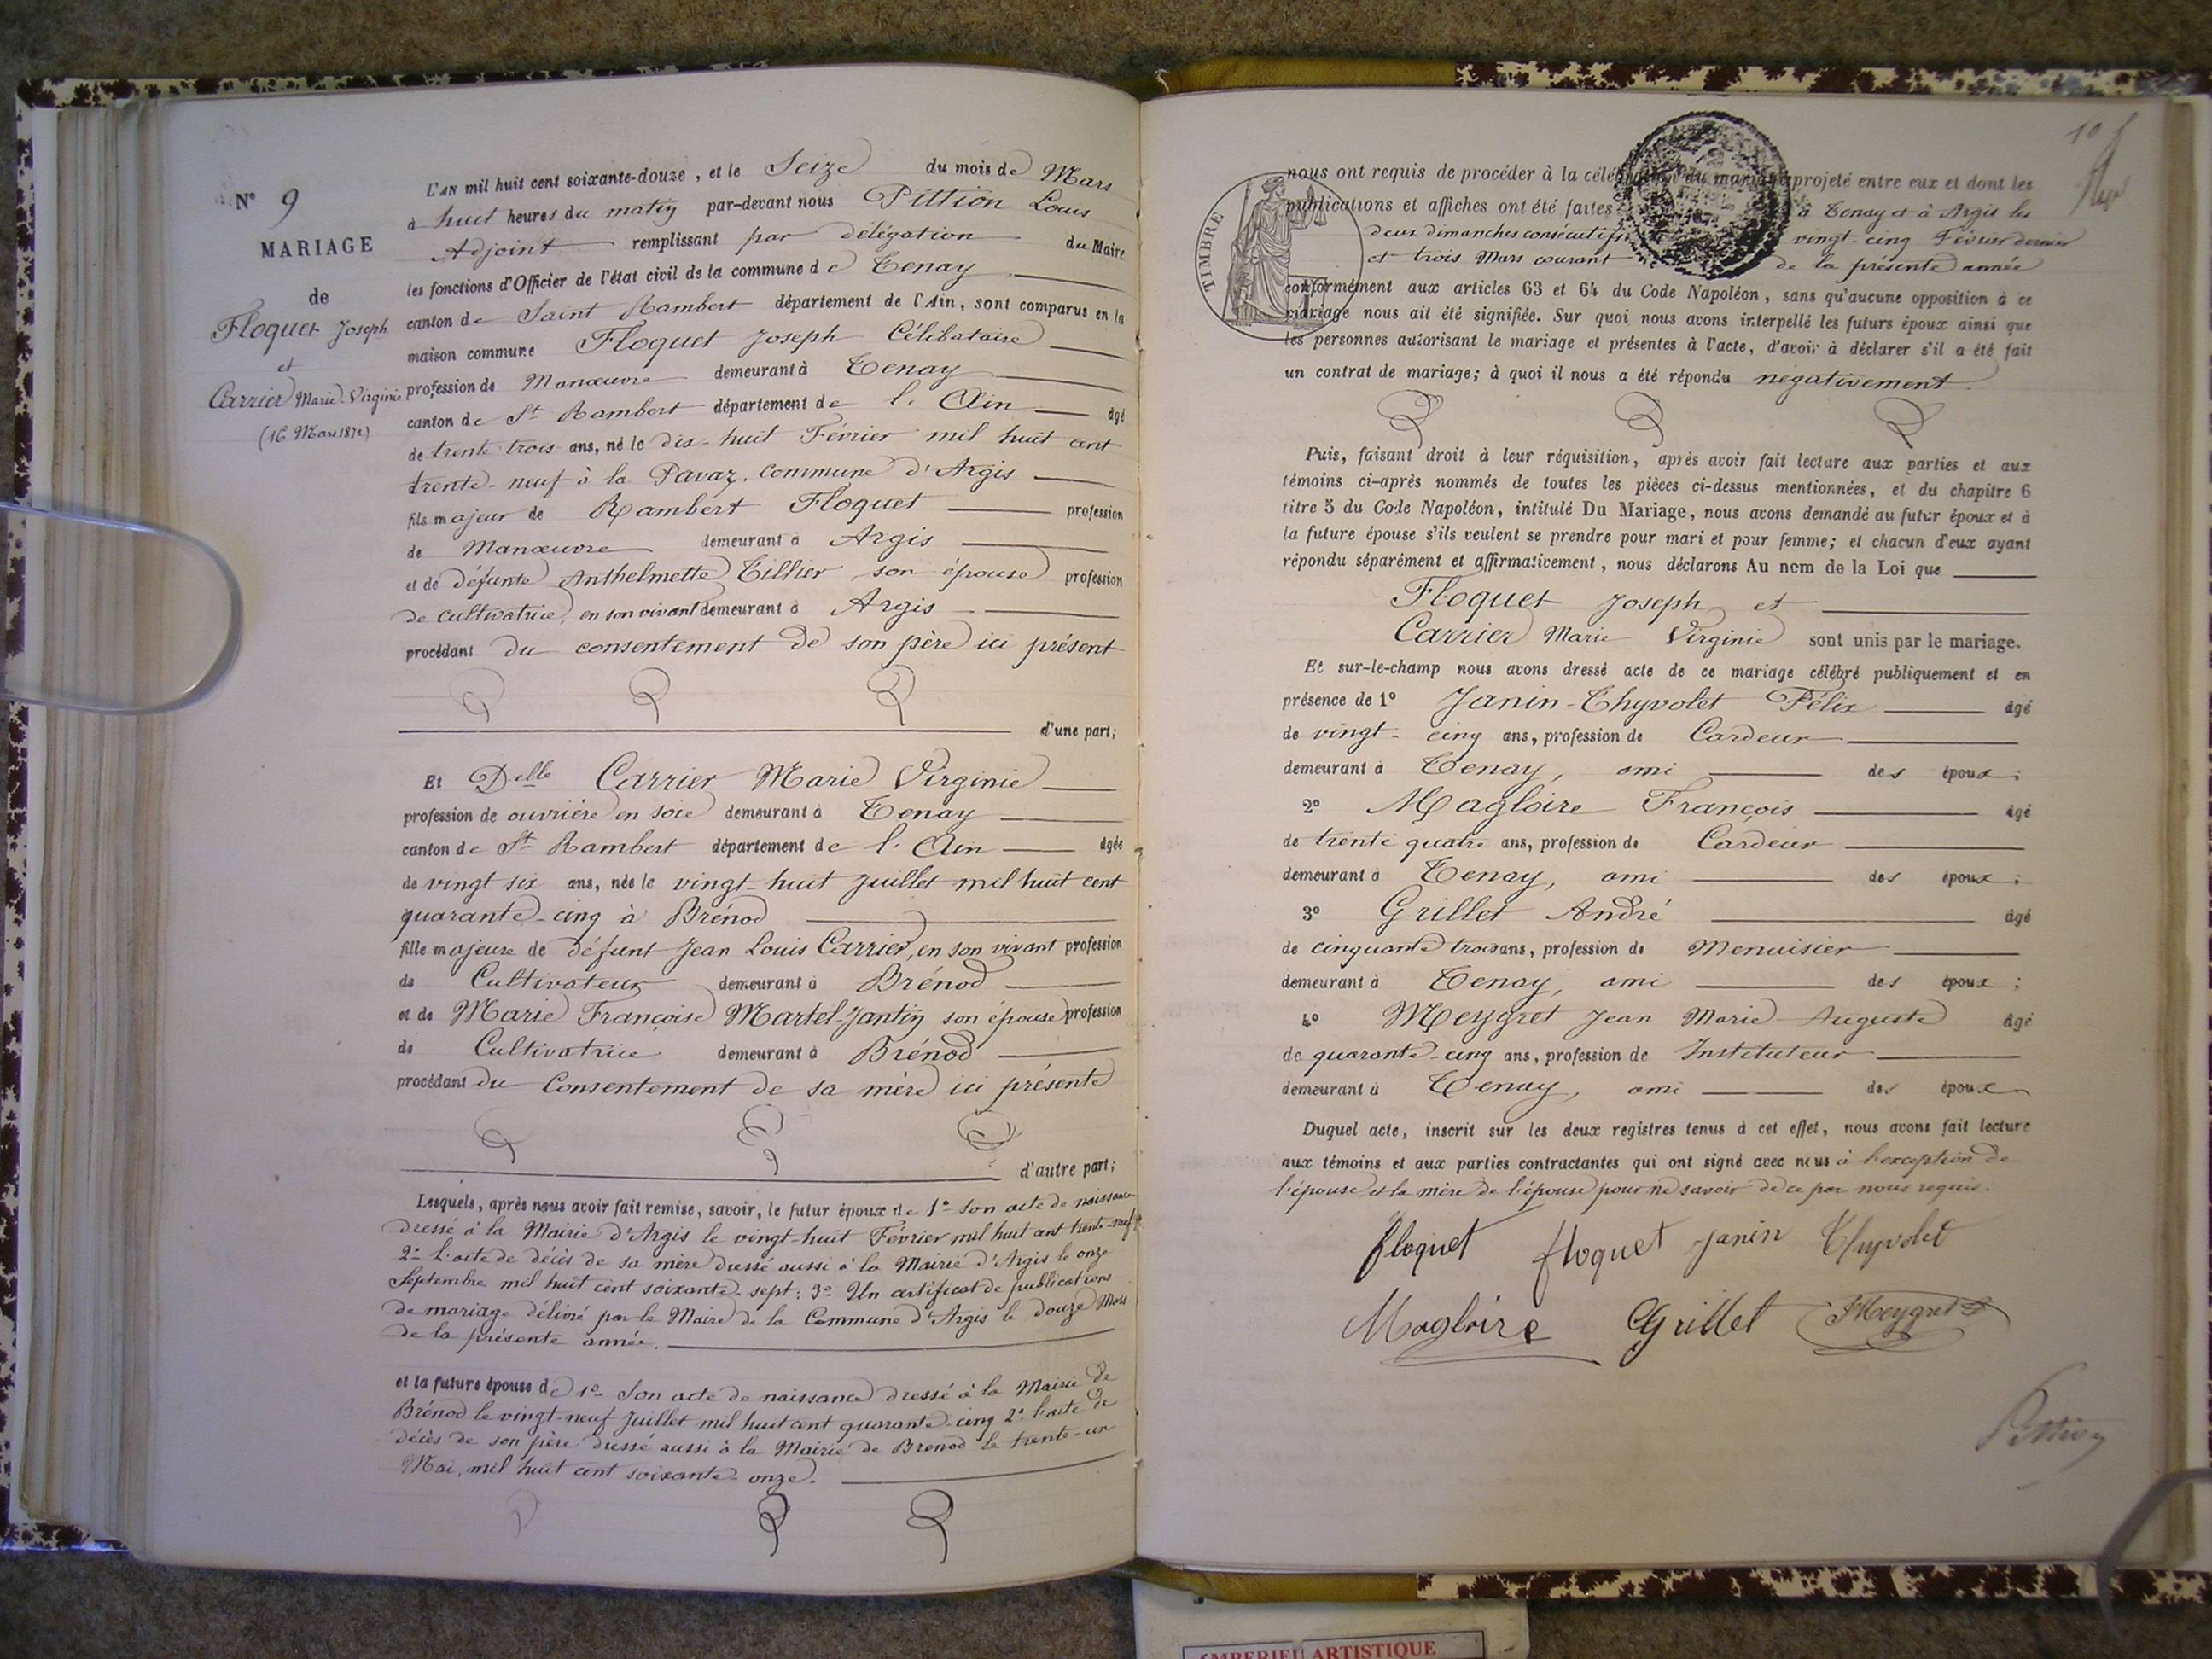 N° 9
MARIAGE
de
Floquet Joseph
et
Carrier Marie-Virginie
(16 Mars 1872)
L'AN mil huit cent soixante-douze, et le Seize du mois de Mars
à huit heures du matin par-devant nous Pittion Louis
Adjoint remplissant par délégation du Maire
les fonctions d'Officier de l'état civil de la commune de Tenay
canton de Saint Rambert département de l'Ain, sont comparus en la
maison commune Floquet Joseph Célibataire
profession de Manœuvre demeurant à Tenay
canton de St Rambert département de l'Ain âgé
de trente trois ans, né le dix-huit Février mil huit cent
trente-neuf à la Pavaz, commune d'Argis
fils majeur de Rambert Floquet profession
de Manœuvre demeurant à Argis
et de défunte Anthelmette Tillier, son épouse profession
de cultivatrice, en son vivant demeurant à Argis
procédant du consentement de son père ici présent
d'une part;
Et Delle Carrier Marie Virginie
profession de ouvrière en soie demeurant à Tenay
canton de St Rambert département de l'Ain âgée
de vingt six ans, née le vingt-huit Juillet mil huit cent
quarante-cinq à Brénod
fille majeure de défunt Jean Louis Carrier, en son vivant profession
de Cultivateur demeurant à Brénod
et de Marie Françoise Martel-Jantin son épouse profession
de Cultivatrice demeurant à Brénod
procédant du Consentement de sa mère ici présente
d'autre part;
Lesquels, après nous avoir fait remise, savoir, le futur époux de 1° Son acte de naissance
dressé à la Mairie d'Argis le vingt-huit Février mil huit cent trente-neuf
2° L'acte de décès de sa mère dressé aussi à la Mairie d'Argis le onze
Septembre mil huit cent soixante-sept: 3° Un certificat de publications
de mariage délivré par le Maire de la Commune d'Argis le douze Mars
de la présente année.
et la future épouse de 1° Son acte de naissance dressé à la Mairie de
Brénod le vingt-neuf Juillet mil huit cent quarante-cinq 2° l'acte de
décès de son père dressé aussi à la Mairie de Brenod le trente-un
Mai, mil huit cent soixante-onze.
10
TIMBRE
nous ont requis de procéder à la célébration du mariage projeté entre eux et dont les
publications et affiches ont été faites à Tenay et à Argis les
deux dimanches consécutifs vingt-cinq Février dernier
et trois Mars courant de la présente année
conformément aux articles 63 et 64 du Code Napoléon, sans qu'aucune opposition à ce
mariage nous ait été signifiée. Sur quoi nous avons interpellé les futurs époux ainsi que
les personnes autorisant le mariage et présentes à l'acte, d'avoir à déclarer s'il a été fait
un contrat de mariage; à quoi il nous a été répondu négativement.
Puis, faisant droit à leur réquisition, après avoir fait lecture aux parties et aux
témoins ci-après nommés de toutes les pièces ci-dessus mentionnées, et du chapitre 6
titre 5 du Code Napoléon, intitulé Du Mariage, nous avons demandé au futur époux et à
la future épouse s'ils veulent se prendre pour mari et pour femme; et chacun d'eux ayant
répondu séparément et affirmativement, nous déclarons Au nom de la Loi que
Floquet Joseph et
Carrier Marie Virginie sont unis par le mariage.
Et sur-le-champ nous avons dressé acte de ce mariage célébré publiquement et en
présence de 1° Janin-Thyvolet Félix âgé
de vingt-cinq ans, profession de Cardeur
demeurant à Tenay, ami des époux;
2° Magloire François âgé
de trente quatre ans, profession de Cardeur
demeurant à Tenay, ami des époux;
3° Grillet André âgé
de cinquante trois ans, profession de Menuisier
demeurant à Tenay, ami des époux;
4° Meygret Jean Marie Auguste âgé
de quarante-cinq ans, profession de Instituteur
demeurant à Tenay, ami des époux
Duquel acte, inscrit sur les deux registres tenus à cet effet, nous avons fait lecture
aux témoins et aux parties contractantes qui ont signé avec nous à l'exception de
l'épouse et la mère de l'épouse pour ne savoir de ce par nous requis.
floquet floquet Janin Thyvolet
Magloire Grillet Meygret
Pittion
ARTISTIQUE